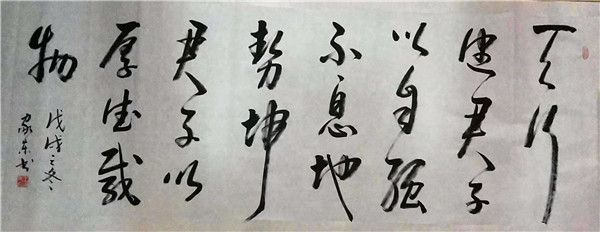 天行
健君子
以自强
不息地
势坤
君子以
厚德载
物
戊戌之冬
家东书